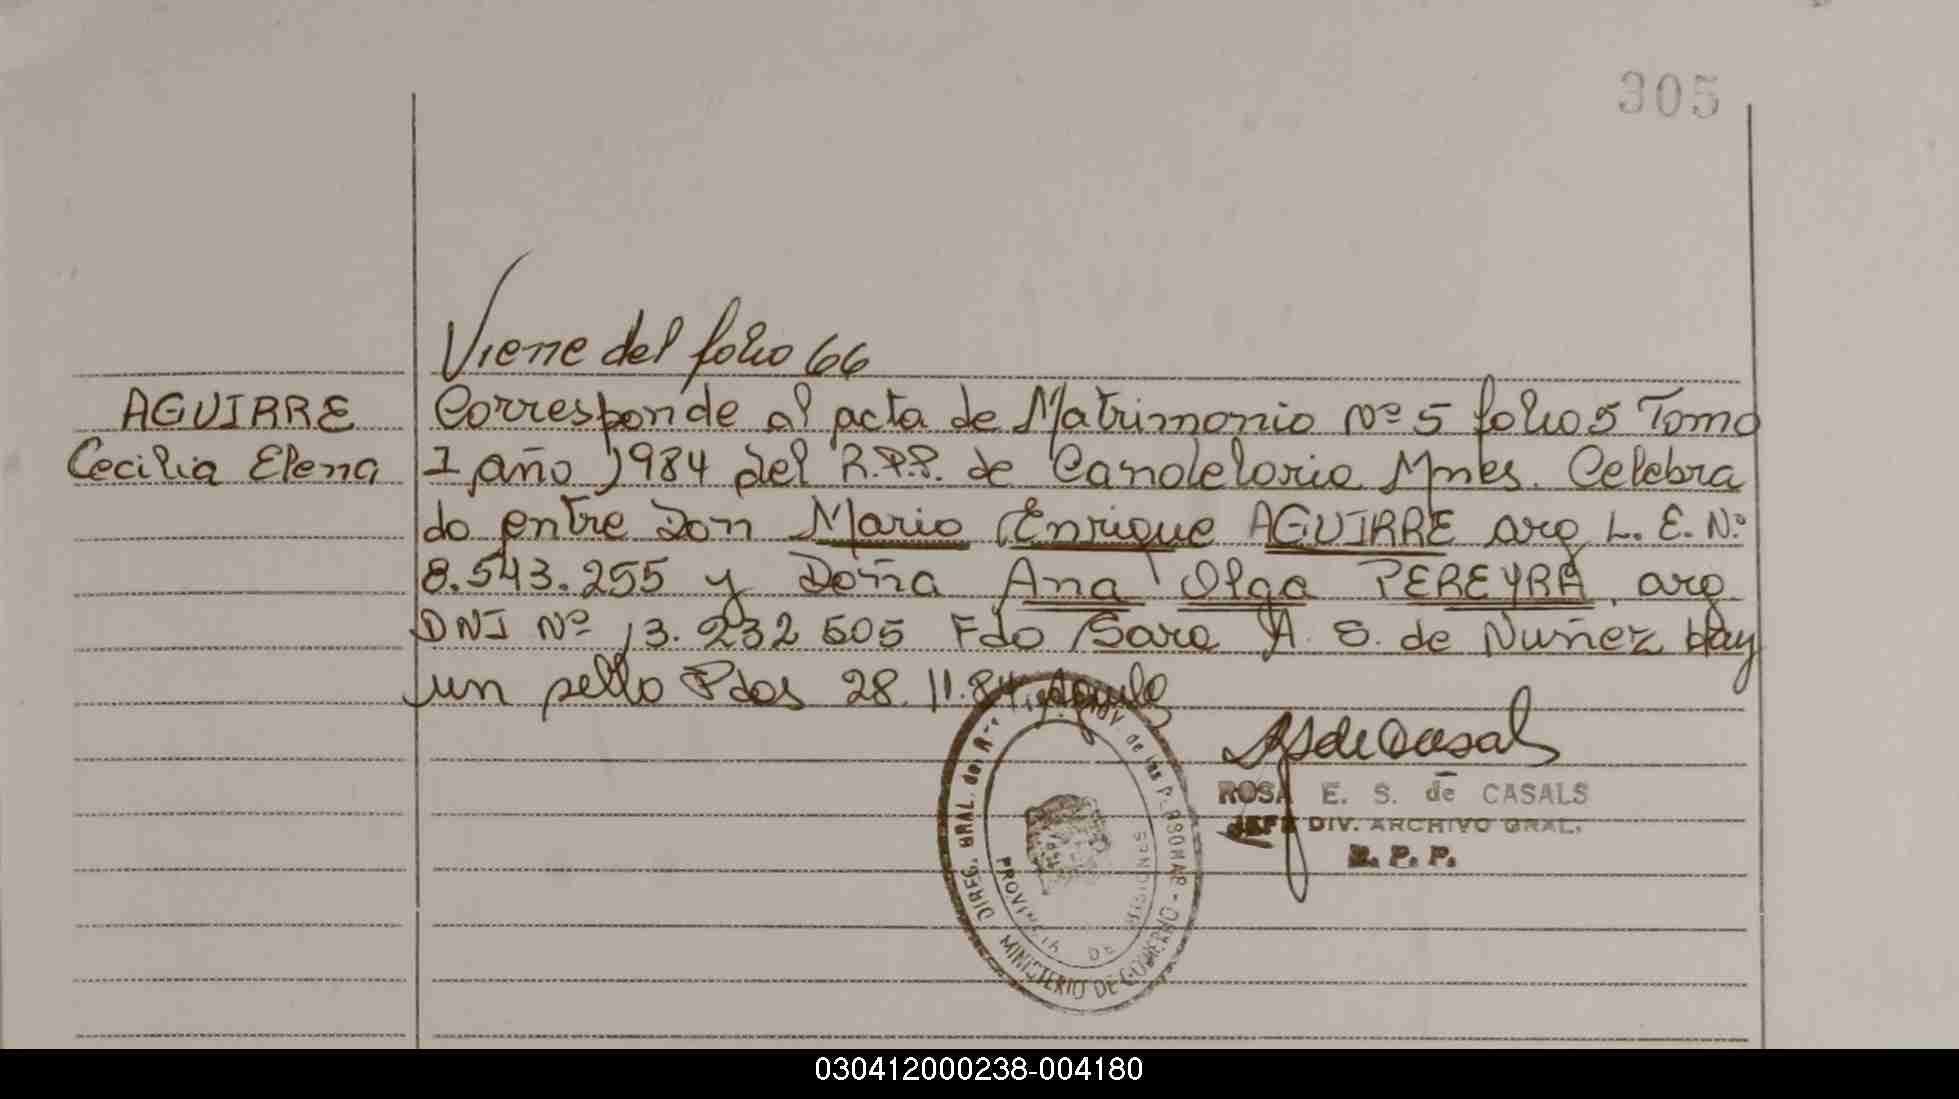 305
Viene del folio 66
AGUIRRE
Cecilia Elena
Corresponde al acta de Matrimonio Nº 5 folio 5 Tomo
I año 1984 del R.P.P. de Candelaria Mnes. Celebra
do entre Don Mario Enrique AGUIRRE arg L. E. Nº
8.543.255 y Doña Ana Olga PEREYRA, arg
DNI Nº 13.232 605 Fdo Sara A. S. de Nuñez Hay
un sello Pdos 28.11.84
ROSA E. S. de CASALS
JEFE DIV. ARCHIVO GRAL.
R. P. P.
DIREC. GRAL. del de las PERSONAS - MINISTERIO DE GOBIERNO
PROVINCIA DE MISIONES
030412000238-004180